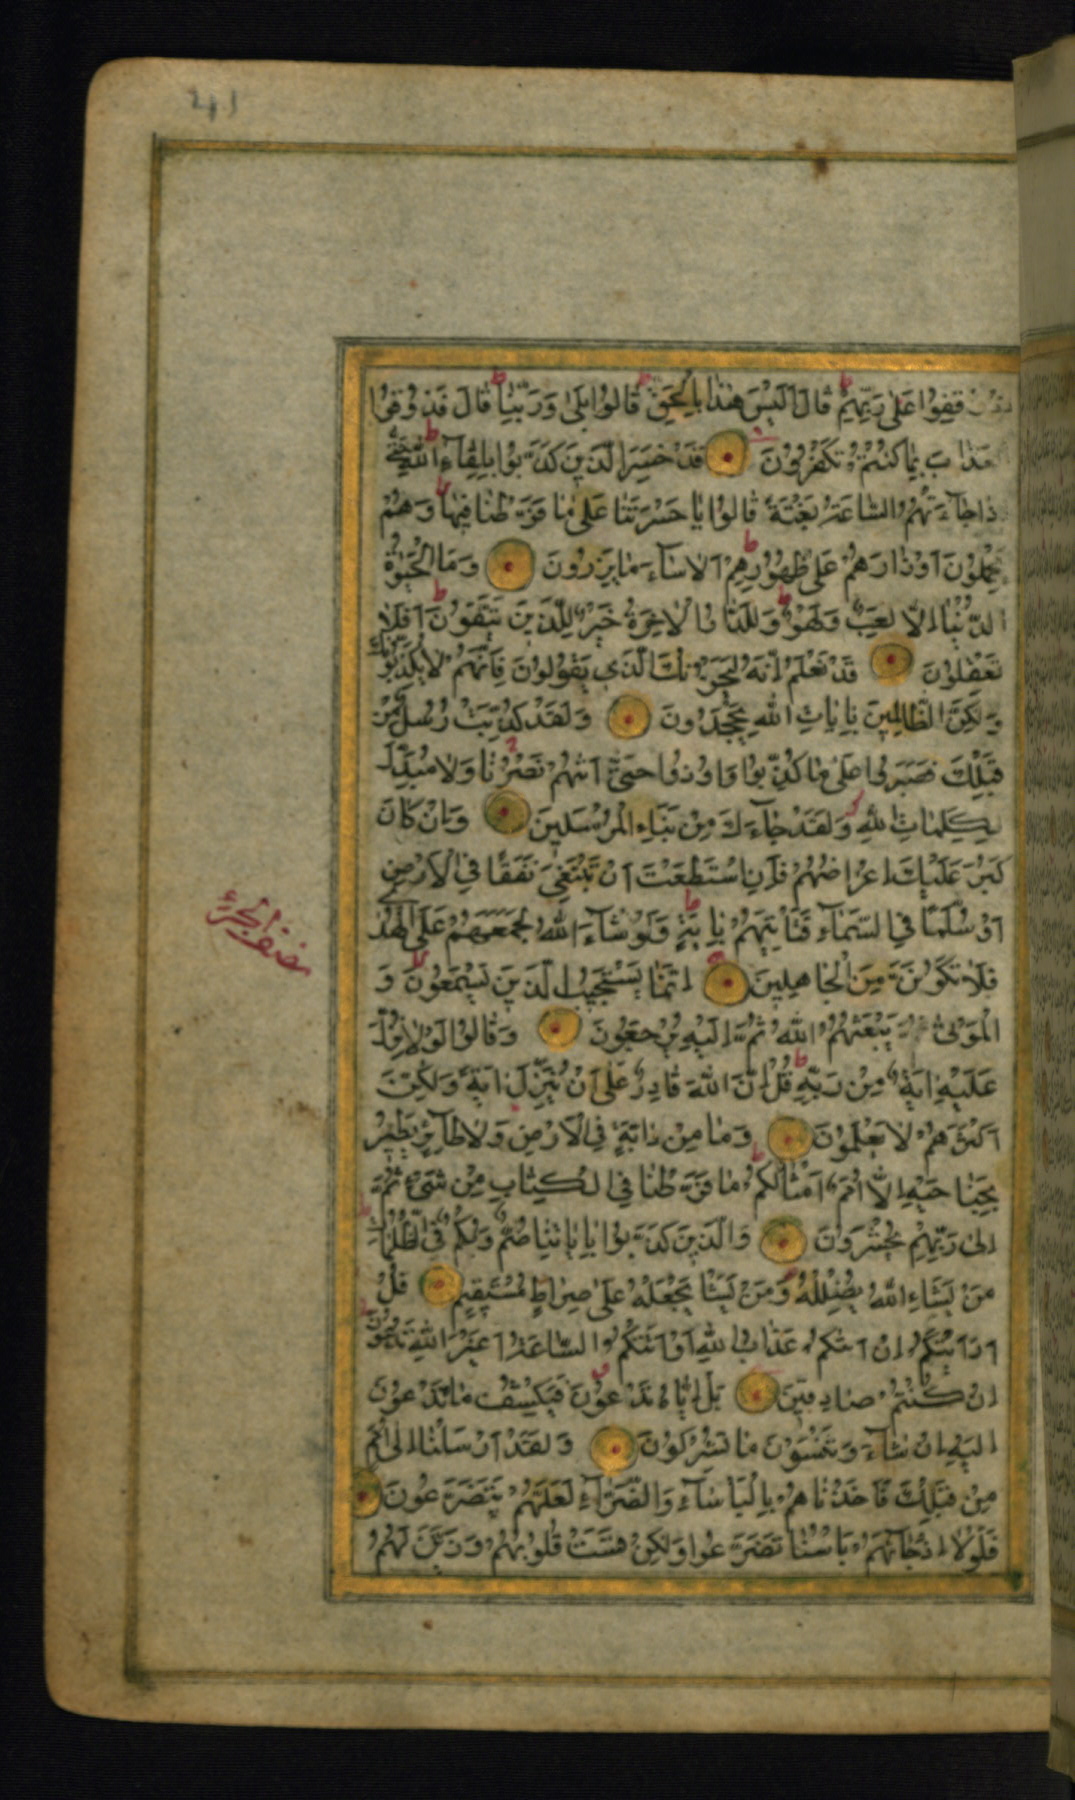 41
وقفوا على ربهم قال اليس هذا بالحق قالوا بلى وربنا قال فذوقوا
العذاب بما كنتم تكفرون قد خسر الذين كذبوا بلقاء الله حتى
اذا جاءتهم الساعة بغتة قالوا يا حسرتنا على ما فرطنا فيها وهم
يحملون اوزارهم على ظهورهم الا ساء ما يزرون وما الحيوة
الدنيا الا لعب ولهو وللدار الاخرة خير للذين يتقون افلا
تعقلون قد نعلم انه ليحزنك الذي يقولون فانهم لا يكذبونك
ولكن الظالمين بايات الله يجحدون ولقد كذبت رسل من
قبلك فصبروا على ما كذبوا واوذوا حتى اتيهم نصرنا ولا مبدل
لكلمات الله ولقد جاءك من نباء المرسلين وان كان
كبر عليك اعراضهم فان استطعت ان تبتغي نفقا في الارض
او سلما في السماء فتاتيهم باية ولو شاء الله لجمعهم على الهدى
فلا تكونن من الجاهلين انما يستجيب الذين يسمعون و
الموتى يبعثهم الله ثم اليه يرجعون وقالوا لولا نزل
عليه اية من ربه قل ان الله قادر على ان ينزل اية ولكن
اكثرهم لا يعلمون وما من دابة في الارض ولا طائر يطير
بجناحيه الا امم امثالكم ما فرطنا في الكتاب من شيء ثم
الى ربهم يحشرون والذين كذبوا باياتنا صم وبكم في الظلمات
من يشاء الله يضلله ومن يشا يجعله على صراط مستقيم قل
ارايتكم ان اتيكم عذاب الله او اتتكم الساعة اغير الله تدعون
ان كنتم صادقين بل اياه تدعون فيكشف ما تدعون
اليه ان شاء وتنسون ما تشركون ولقد ارسلنا الى امم
من قبلك فاخذناهم بالباساء والضراء لعلهم يتضرعون
فلولا اذ جاءهم باسنا تضرعوا ولكن قست قلوبهم وزين لهم
نصف الجزء